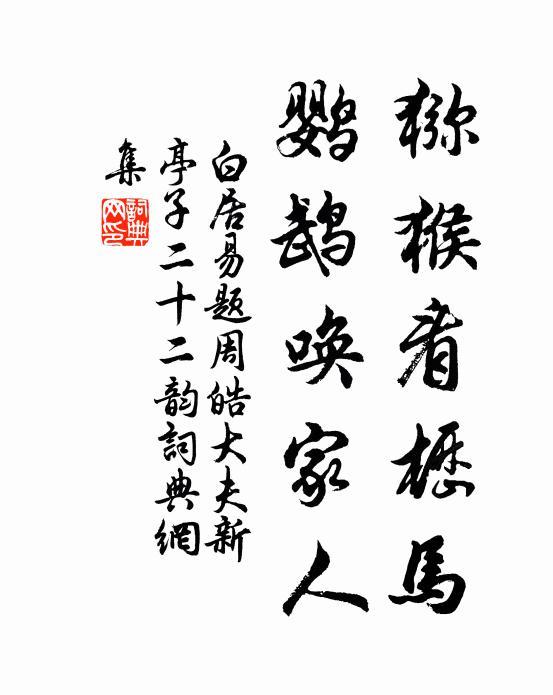 猕猴看櫪馬
鹦鹉唤家人
白居易题周皓大夫新
亭子二十二韵詞典網
集
詞典
网印